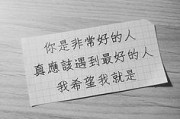 你是非常好的人
真應該遇到最好的人
我希望我就是